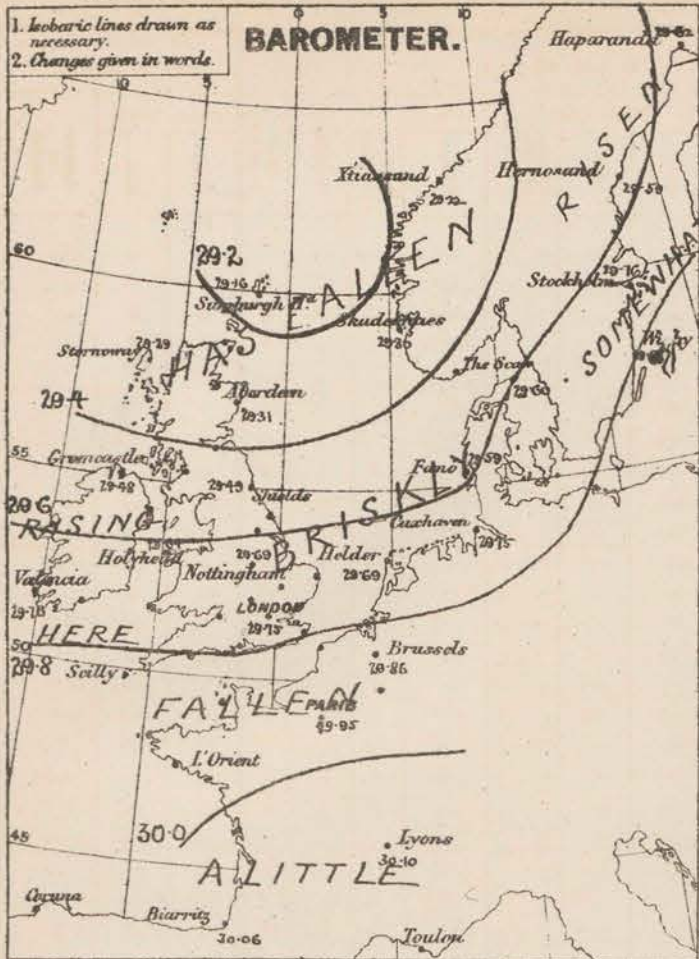 1. Isobaric lines drawn as
necessary.
2. Changes given in words.
BAROMETER.
10
5
5
10
Haparanda
Xtiansand
Hernosand
RISEN
29·22
29·59
60
29·2
29·16
Sumburgh Hd.
Stockholm
FALLEN
Skudesnaes
29·26
SOMEWHAT
Wisby
Stornoway
29·29
HAS
Aberdeen
29·31
The Scaw
29·60
29·4
55
Greencastle
29·48
29·49
Shields
Fano
29·59
29·6
RISING
BRISKLY
Cuxhaven
29·75
Holyhead
29·69
Nottingham
Helder
29·69
Valencia
29·78
LONDON
29·75
HERE
50
29·8
Scilly
Brussels
29·86
FALLEN
PARIS
29·95
L'Orient
30·0
45
Lyons
30·10
A LITTLE
Coruna
Biarritz
30·06
Toulon